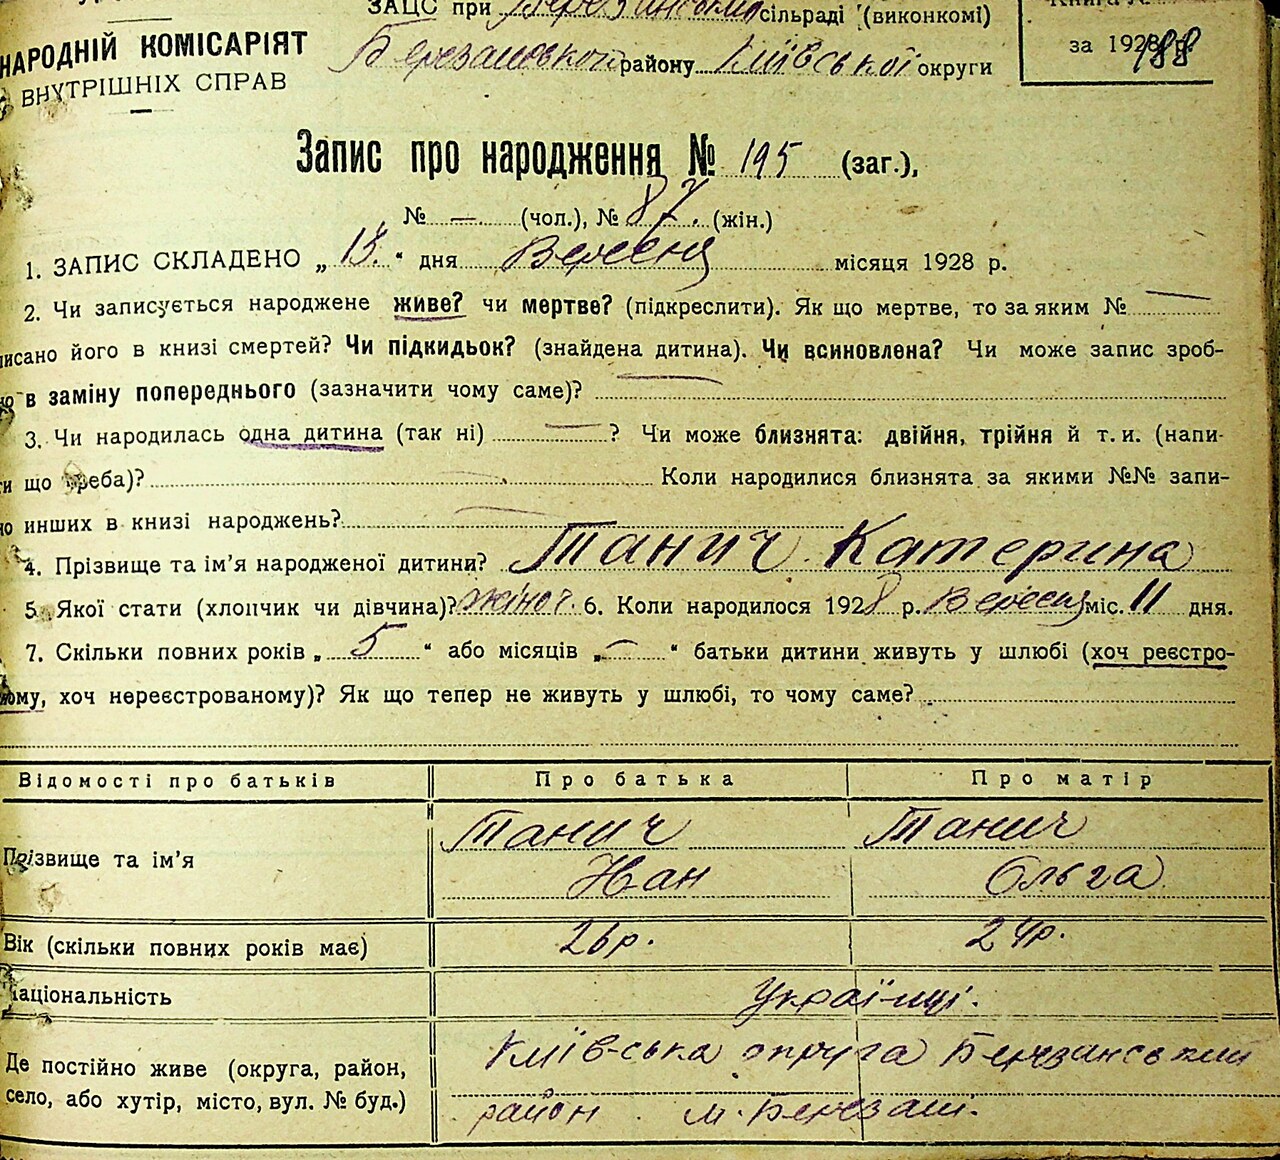 ЗАЦС при Березанській сільраді (виконкомі)
НАРОДНІЙ КОМІСАРІЯТ
ВНУТРІШНІХ СПРАВ
Березанського району Київської округи
за 1928 р.
188
Запис про народження № 195 (заг.),
№ — (чол.), № 87. (жін.)
1. ЗАПИС СКЛАДЕНО „ 13. " дня Вересня місяця 1928 р.
2. Чи записується народжене живе? чи мертве? (підкреслити). Як що мертве, то за яким № —
писано його в книзі смертей? Чи підкидьок? (знайдена дитина). Чи всиновлена? Чи може запис зроб-
но в заміну попереднього (зазначити чому саме)? —
3. Чи народилась одна дитина (так ні) — ? Чи може близнята: двійня, трійня й т. и. (напи-
ти що треба)? — Коли народилися близнята за якими №№ запи-
но инших в книзі народжень? —
4. Прізвище та ім'я народженої дитини? Танич Катерина
5. Якої стати (хлопчик чи дівчина)? жіноч. 6. Коли народилося 1928 р. Вересня міс. 11 дня.
7. Скільки повних років „ 5 " або місяців „ — " батьки дитини живуть у шлюбі (хоч реєстро-
ному, хоч нереєстрованому)? Як що тепер не живуть у шлюбі, то чому саме?
Відомості про батьків Про батька Про матір
Прізвище та ім'я Танич Іван Танич Ольга
Вік (скільки повних років має) 26 р. 24 р.
Національність Українці.
Де постійно живе (округа, район, Київська округа Березанський
село, або хутір, місто, вул. № буд.) район м. Березань.